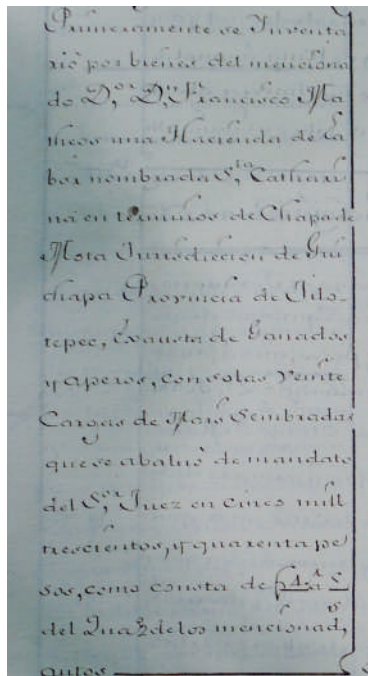 Primeramente se Inventa
rió por bienes del menciona
do D.or D.n Francisco Ma
theos una Hacienda de la
bor nombrada S.ta Cathari
na en términos de Chapa de
Mota Jurisdiccion de Gui
chapa Provincia de Jilo-
tepec, Exausta de Ganados
y aperos, con solas veinte
Cargas de Mais Sembradas
que se abaluó de mandato
del S.or Juez en cinco mill
trescientos, y quarenta pe
sos, como consta de
del Quad.o de los mencionad.s
autos